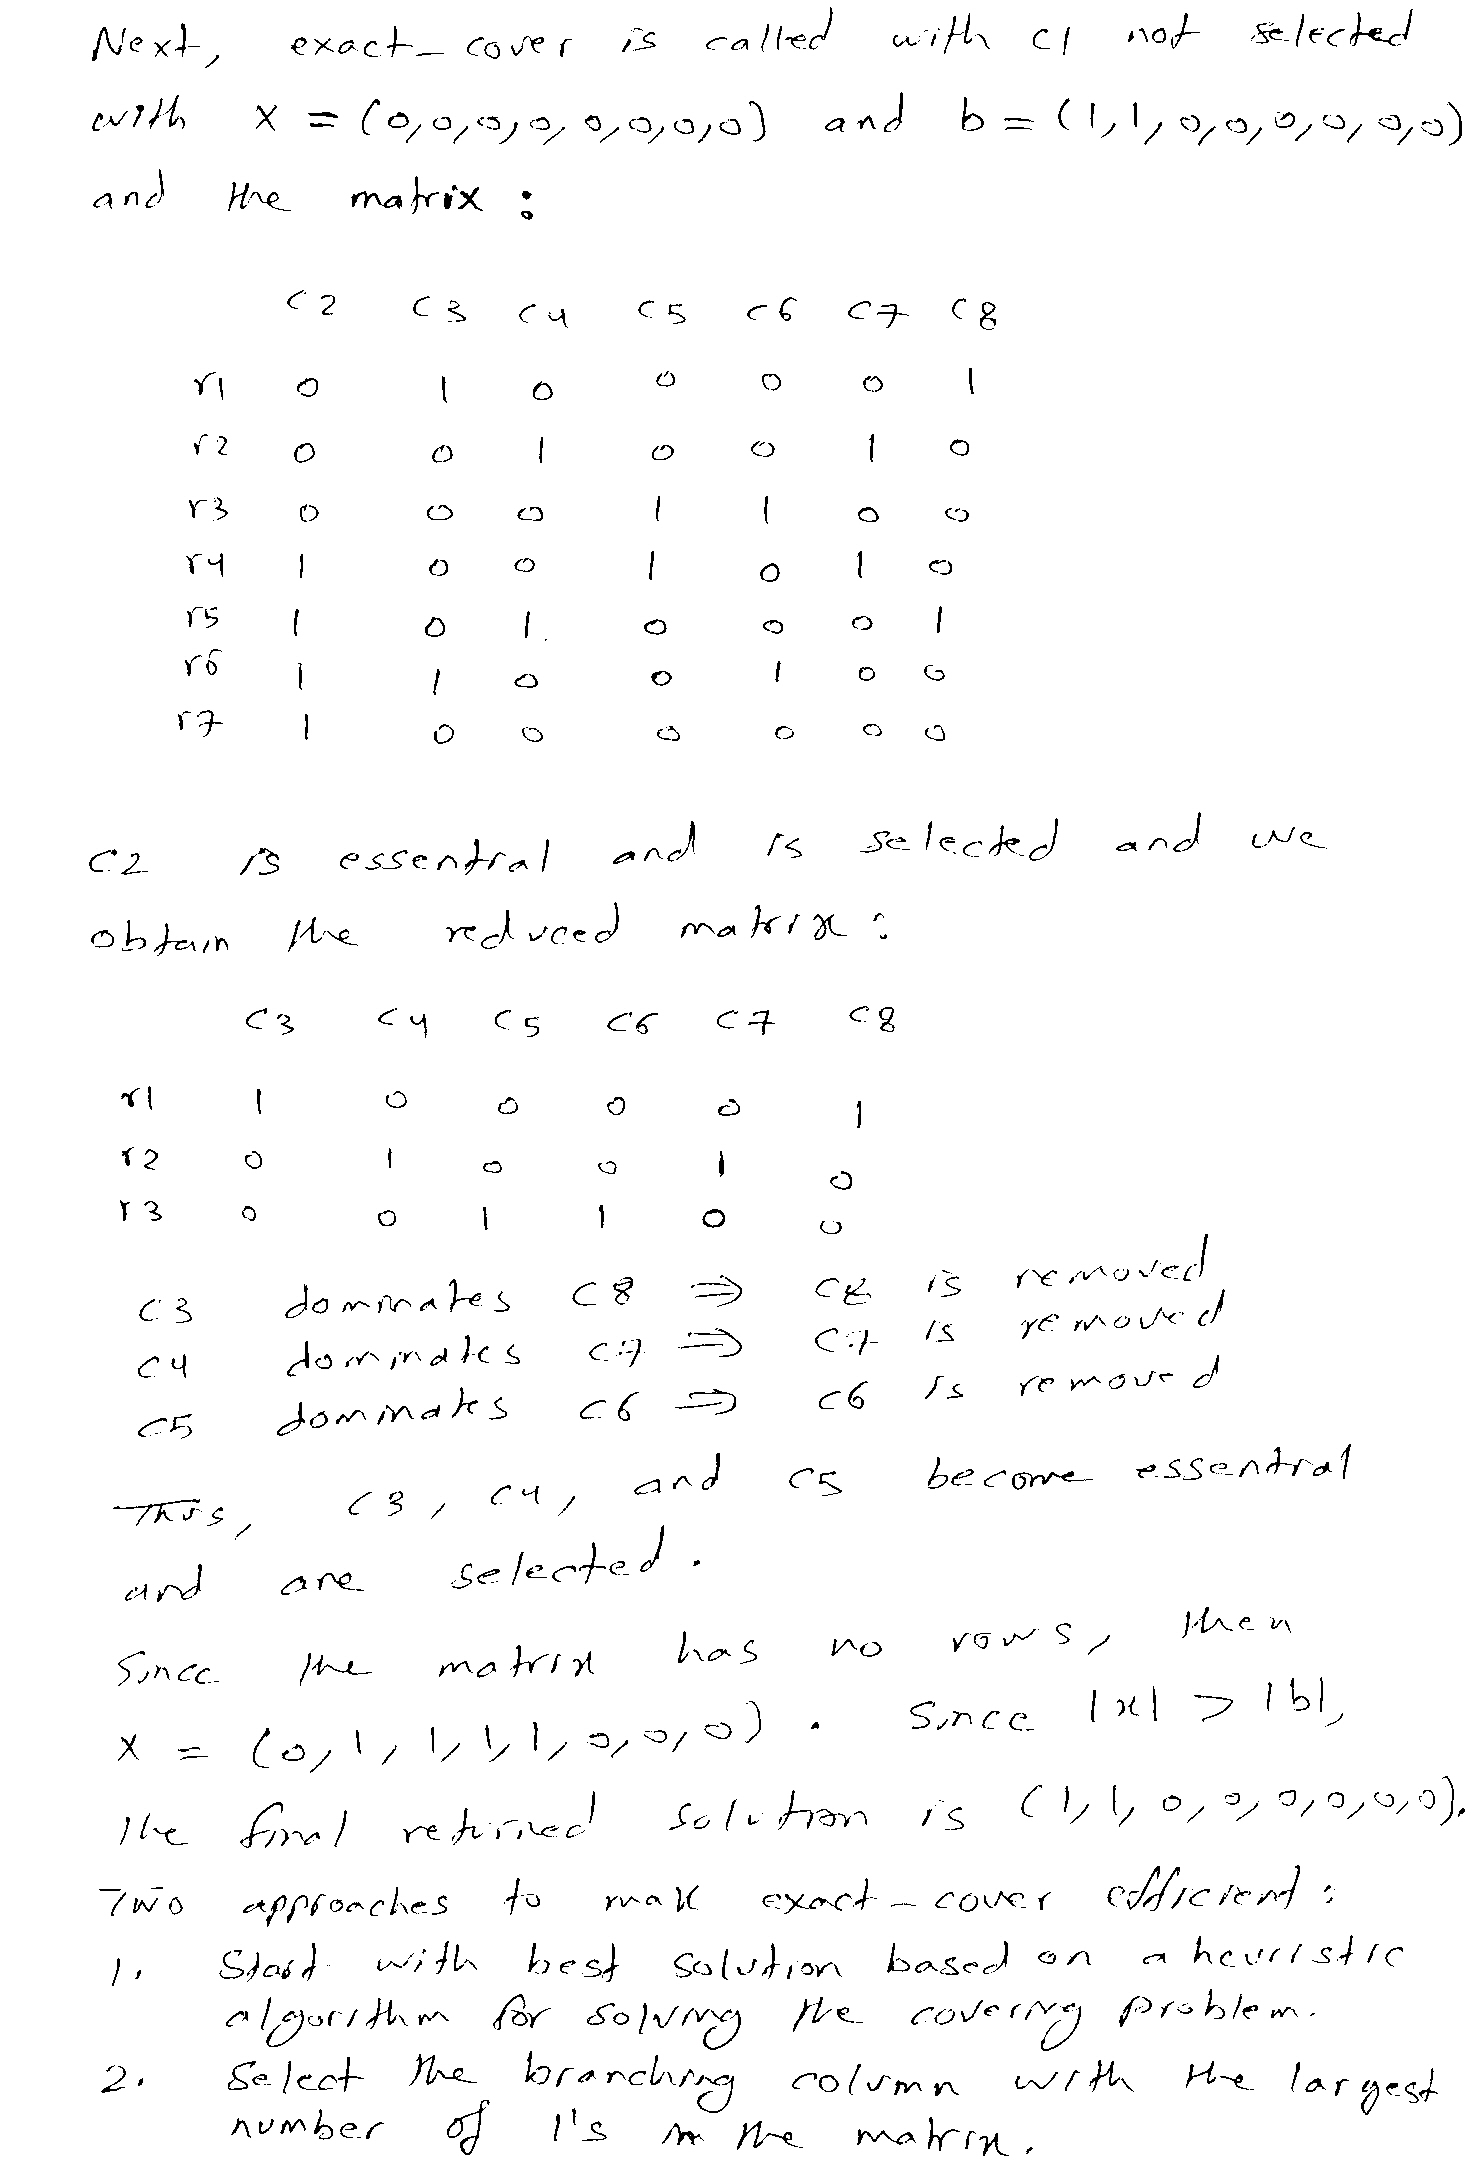 Next, exact-cover is called with c1 not selected
with x = (0,0,0,0,0,0,0,0) and b = (1,1,0,0,0,0,0,0)
and the matrix :
c2 c3 c4 c5 c6 c7 c8
r1 0 1 0 0 0 0 1
r2 0 0 1 0 0 1 0
r3 0 0 0 1 1 0 0
r4 1 0 0 1 0 1 0
r5 1 0 1 0 0 0 1
r6 1 1 0 0 1 0 0
r7 1 0 0 0 0 0 0
c2 is essential and is selected and we
obtain the reduced matrix :
c3 c4 c5 c6 c7 c8
r1 1 0 0 0 0 1
r2 0 1 0 0 1 0
r3 0 0 1 1 0 0
c3 dominates c8 ⇒ c8 is removed
c4 dominates c7 ⇒ c7 is removed
c5 dominates c6 ⇒ c6 is removed
Thus, c3, c4, and c5 become essential
and are selected.
Since the matrix has no rows, then
x = (0,1,1,1,1,0,0,0). Since |x| > |b|,
the final returned solution is (1,1,0,0,0,0,0,0).
Two approaches to mak exact-cover efficient :
1. Start with best solution based on a heuristic
algorithm for solving the covering problem.
2. Select the branching column with the largest
number of 1's in the matrix.